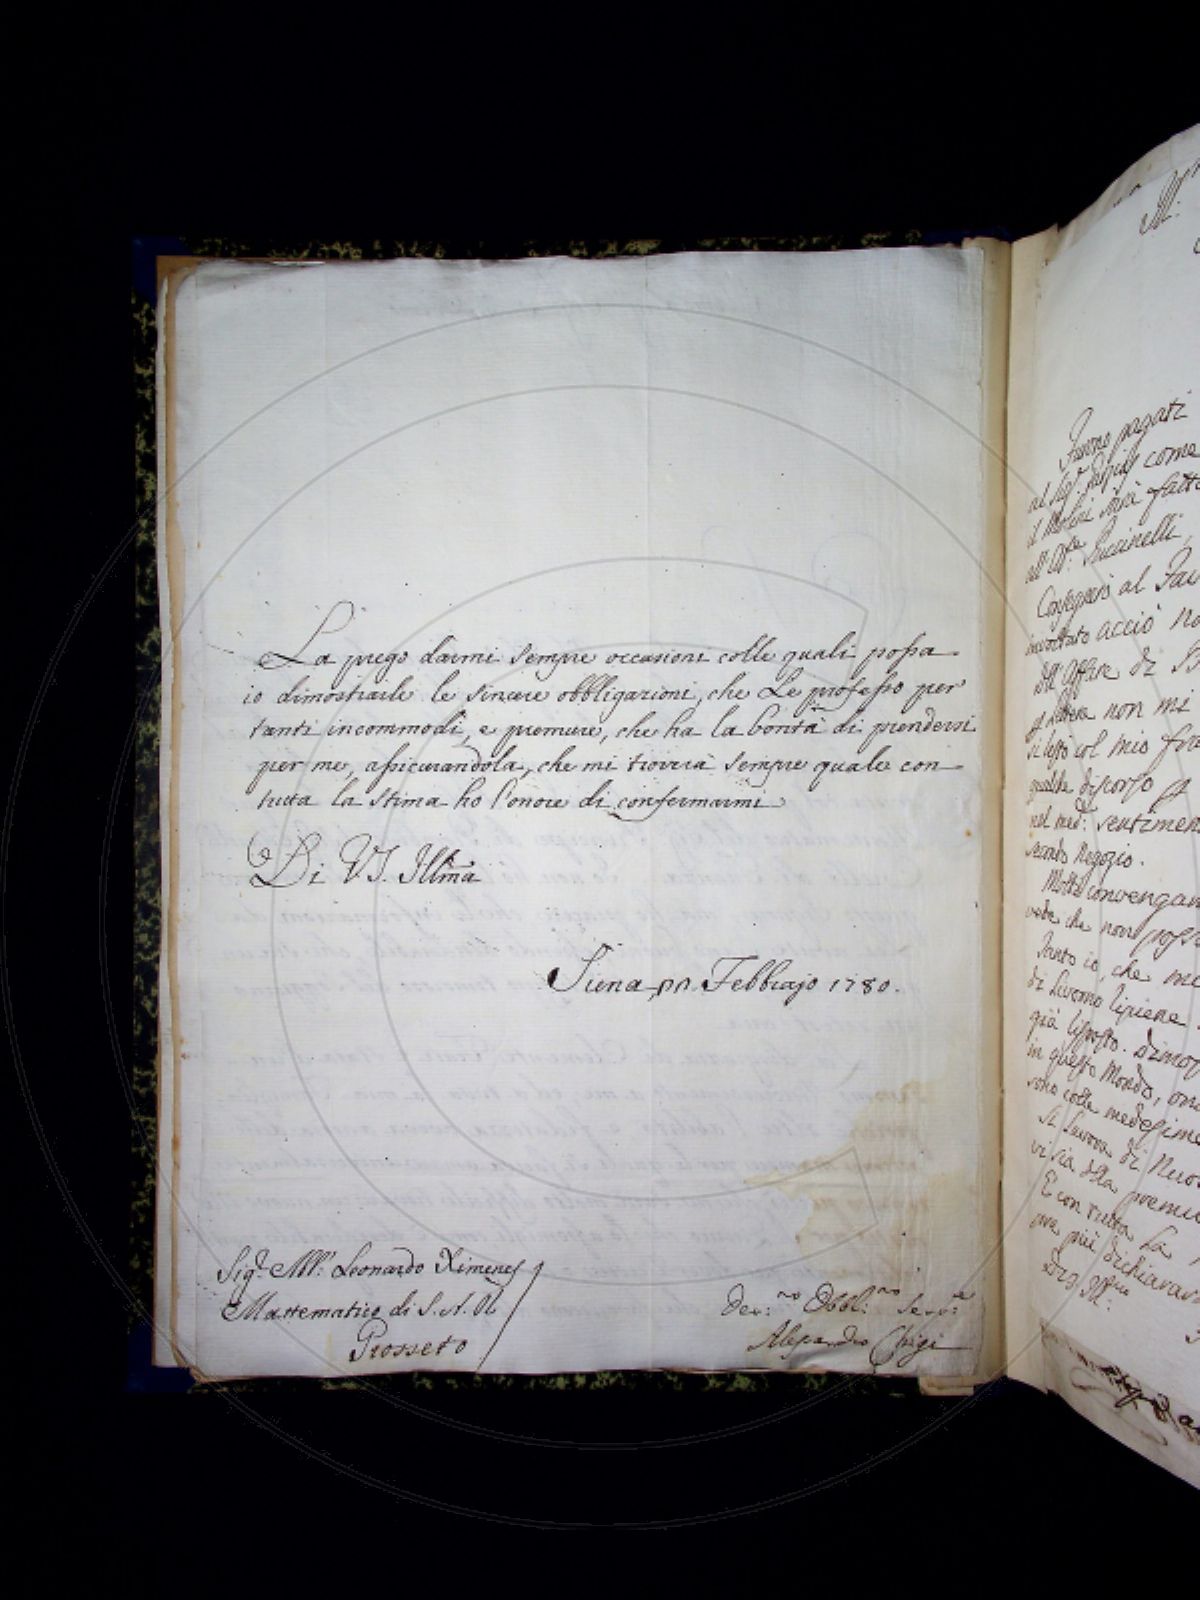 La prego darmi sempre occasioni colle quali possa
io dimostrarle le sincere obbligazioni, che Le professo per
tanti incommodi, e premure, che ha la bontà di prendersi
per me, assicurandola, che mi troverà sempre quale con
tutta la stima ho l'onore di confermarmi
Di VS. Illma
Siena Febbrajo 1780.
Sigr. Abb: Leonardo Ximenes
Mattematico di S. A. R.
Grosseto
Dev:mo Obbl:mo Serv:e
Alessandro Chigi
Furono pagati
al Sigr come
il Molini farà fatto
all' Ab:te Puccinelli,
Consegnerò al
involtato acciò
dell' affare di
non mi
si lesse col mio
qualche discorso p
nel med: sentimen
secondo Negozio.
Molto convengan
vede che non posso
Tanto io, che me
di Livorno
già. Dimos
in questo Mondo, on
sono colle medesime
di
vi sia della premu
E con tutta la
più dichiarar